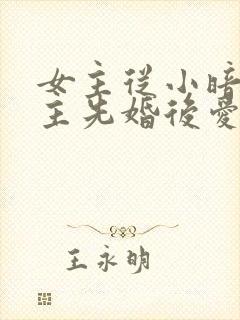 女主從小暗
主先婚後愛
王永明